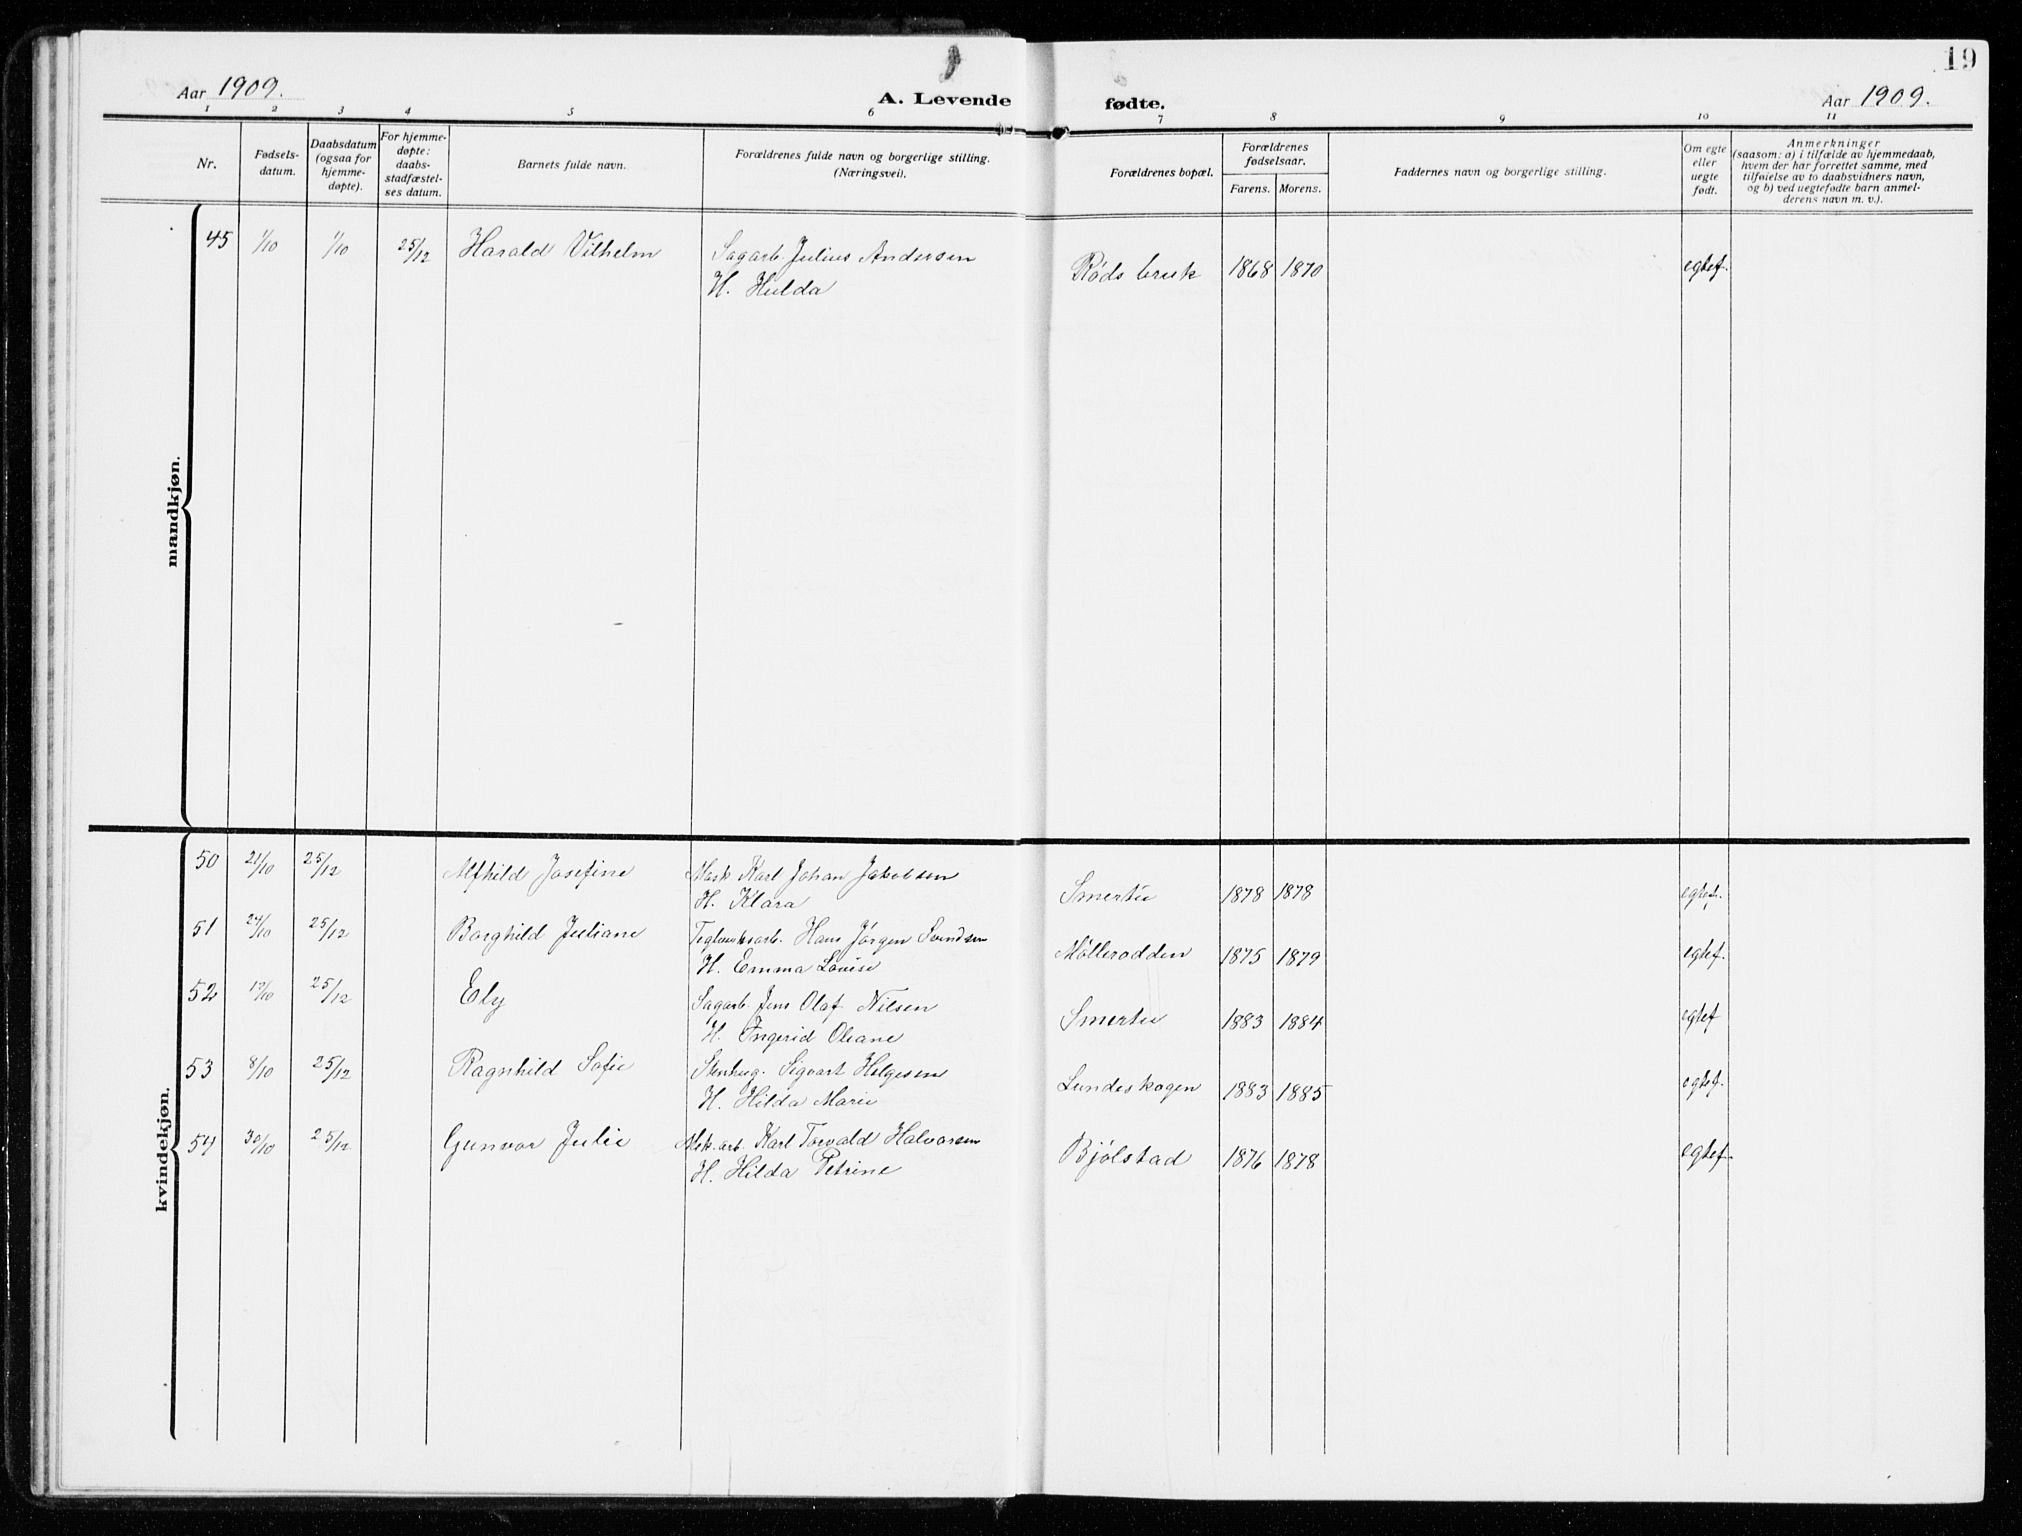 19
Aar 1909.
A. Levende fødte.
Aar 1909.
1 2 3 4 5 6 7 8 9 10 11
Nr.
Fødsels-
datum.
Daabsdatum
(ogsaa for
hjemme-
døpte).
For hjemme-
døpte:
daabs-
stadfæstel-
ses datum.
Barnets fulde navn.
Forældrenes fulde navn og borgerlige stilling.
(Næringsvei).
Forældrenes bopæl.
Forældrenes
fødselsaar.
Farens. Morens.
Faddernes navn og borgerlige stilling.
Om egte
eller
uegte
født.
Anmerkninger
(saasom: a) i tilfælde av hjemmedaab,
hvem der har forrettet samme, med
tilføielse av to daabsvidners navn,
og b) ved uegtefødte barn anmel-
derens navn m. v.).
mandkjøn.
45 1/10 1/10 25/12 Harald Vilhelm Sagarb. Julius Andersen Røds bruk 1868 1870 egtef.
H. Hulda
kvindekjøn.
50 21/10 25/12 Alfhild Josefine Mask Karl Johan Jakobsen Smertu 1878 1878 egtef.
H. Klara
51 24/10 25/12 Borghild Juliane Teglverksarb. Hans Jørgen Svendsen Møllerodden 1875 1879 egtef.
H. Emma Lovise
52 /10 25/12 Ely Sagarb Jens Olaf Nilsen Smertu 1883 1884 egtef
H. Ingerid Oleane
53 8/10 25/12 Ragnhild Sofie Stenhug. Sigvart Helgesen Lundeskogen 1883 1885 egtef.
H. Hilda Marie
54 30/10 25/12 Gunvor Julie Mek.arb. Karl Torvald Halvorsen Bjølstad 1876 1878 egtef.
H. Hilda Petrine